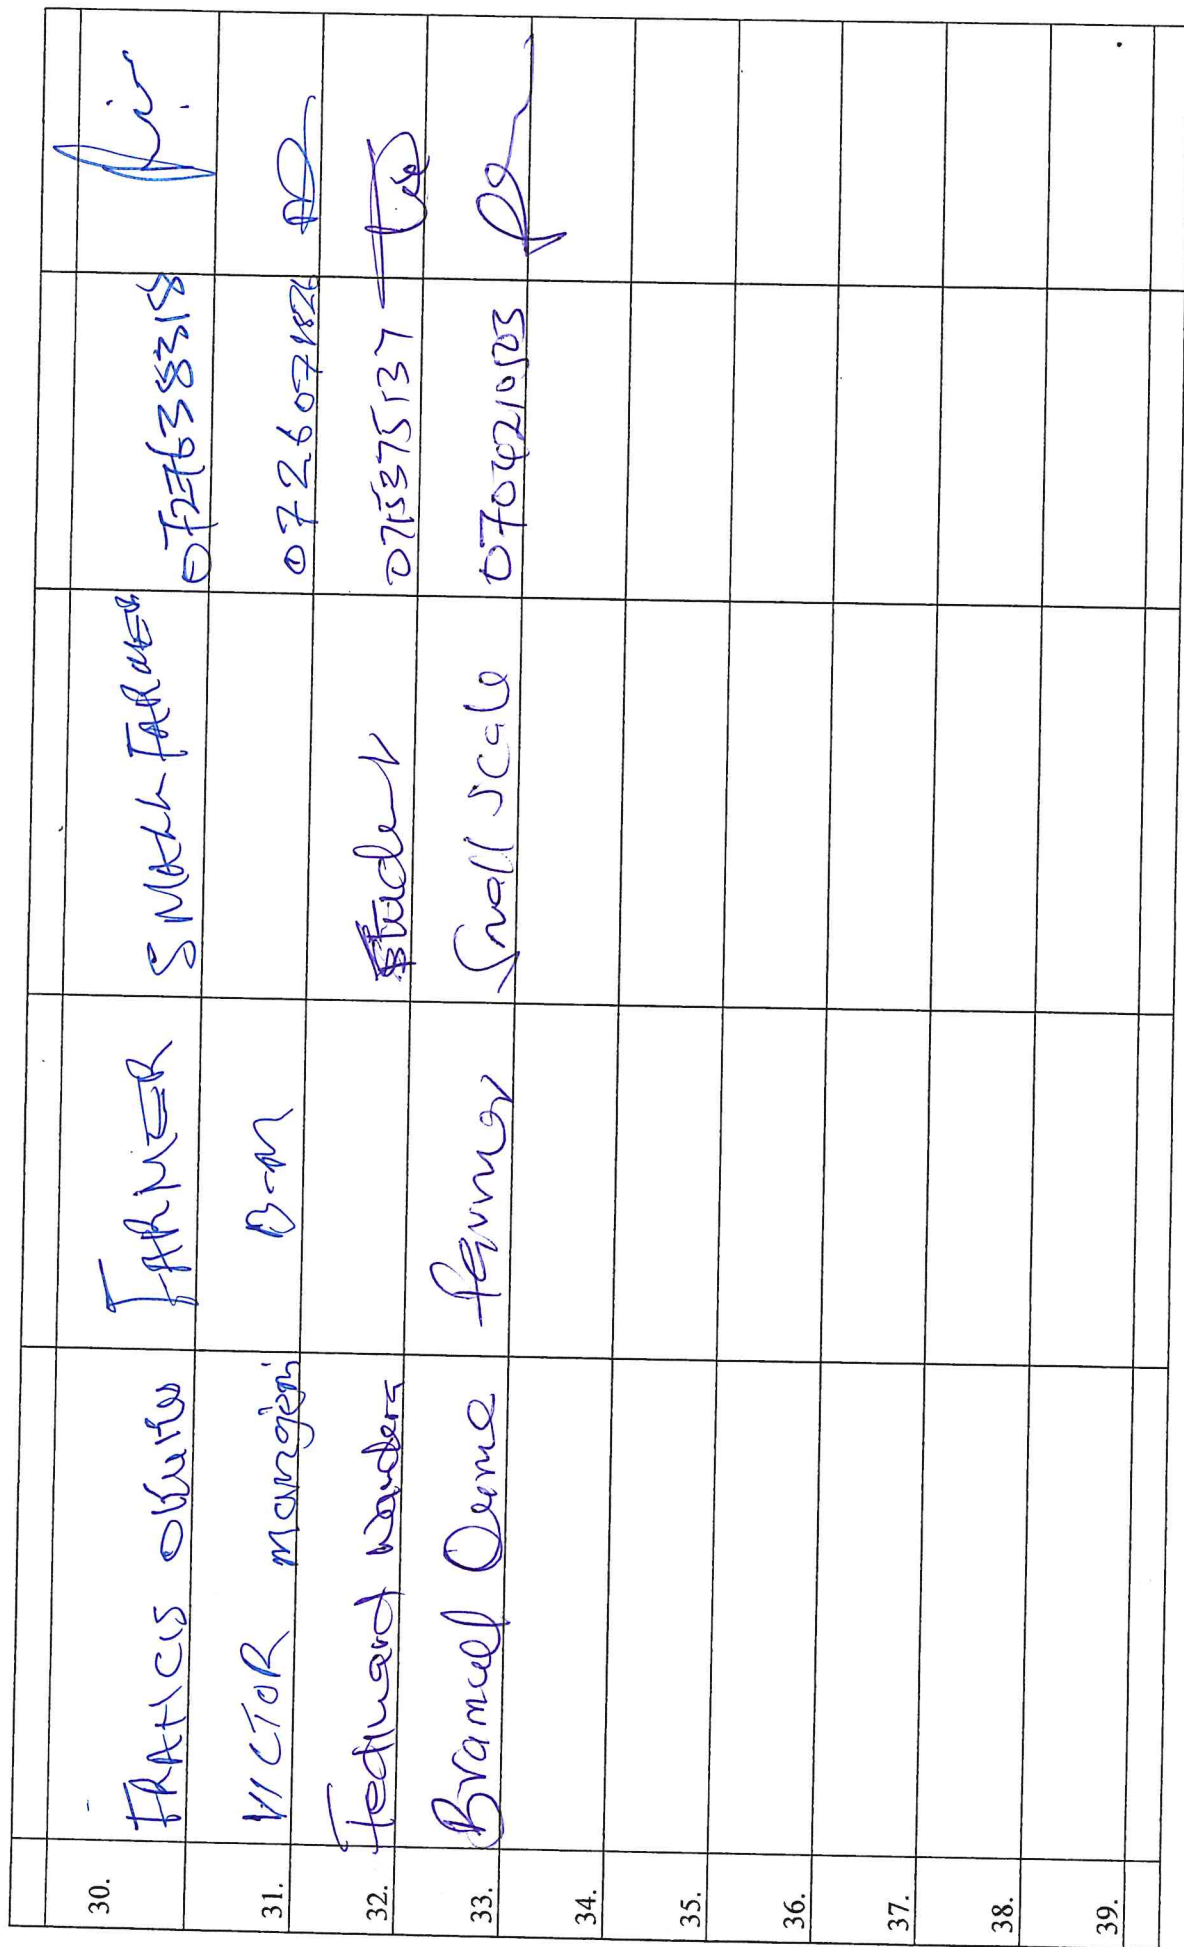 30. FRANCIS OKUKU FARMER SMALL FARMER 0727638318
31. VICTOR B-M 0726071826
32. Tedward Wandera Student 0715375137
33. Bramuel farmer Small scale
34.
35.
36.
37.
38.
39.